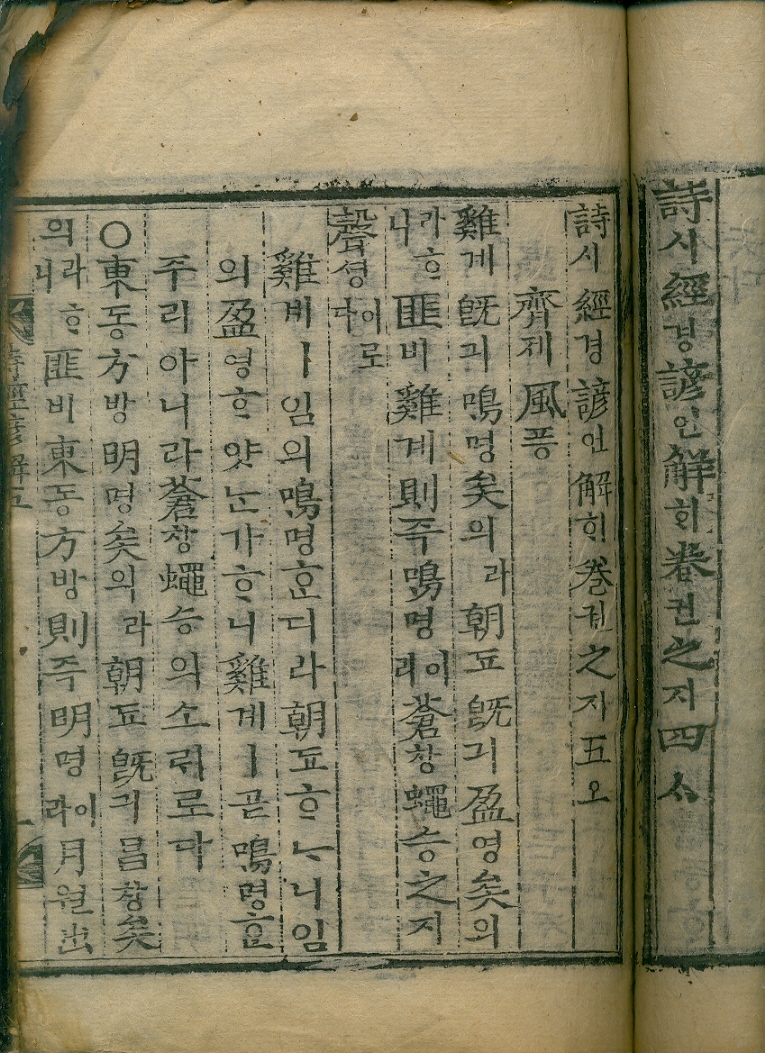 詩시經경諺언解ᄒᆡ卷권之지四ᄉᆞ
詩시經경諺언解ᄒᆡ卷권之지五오
齊제風풍
雞계旣긔鳴명矣의라朝됴旣긔盈영矣의
라ᄒᆞ니匪비雞계則즉鳴명이라蒼창蠅승之지
聲셩이로다
雞계ㅣ임의鳴명ᄒᆞᆫ디라朝됴ᄒᆞᄂᆞ니임
의盈영ᄒᆞ얏ᄂᆞᆫ가ᄒᆞ니雞계ㅣ곧鳴명ᄒᆞᆫ
주리아니라蒼창蠅승의소ᄅᆡ로다
○東동方방明명矣의라朝됴旣긔昌창矣
의라ᄒᆞ니匪비東동方방則즉明명이라月월出
詩經諺解五
一